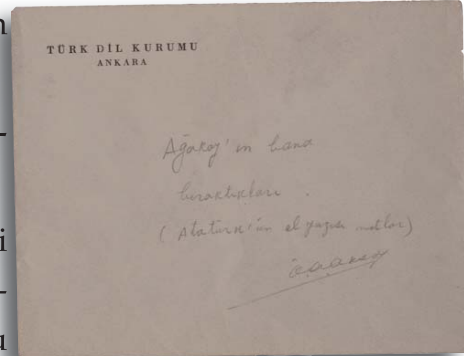 n
TÜRK DİL KURUMU
ANKARA
-
Ağakay'ın bana
bıraktıkları.
(Atatürk'ün el yazısı notlar)
i
-
u